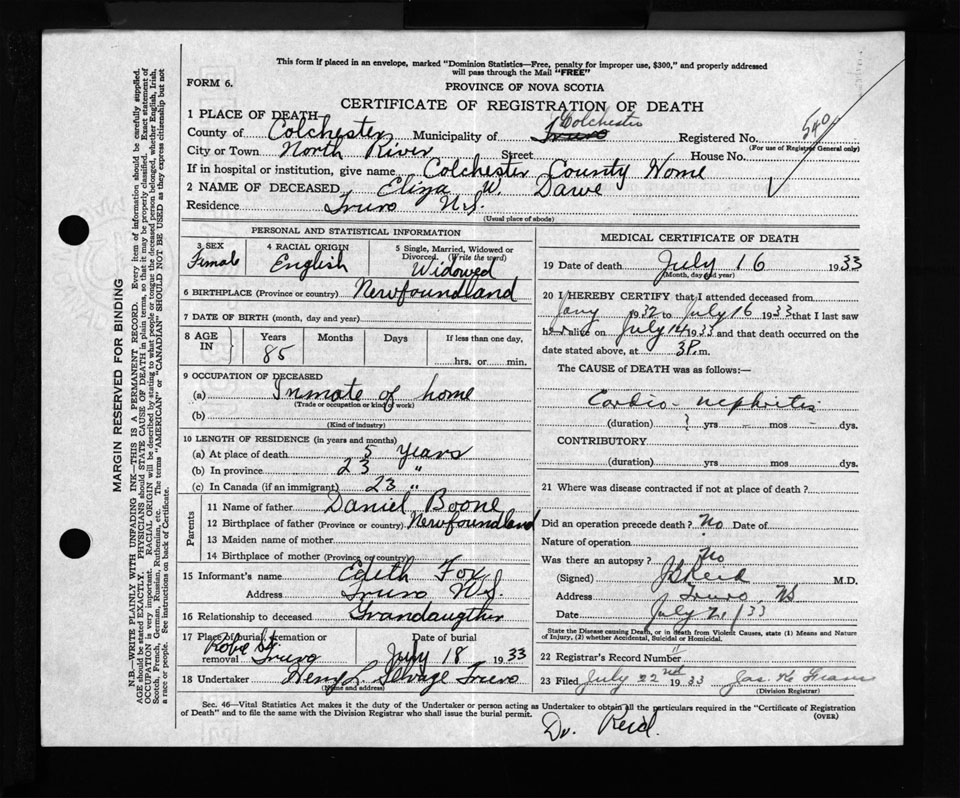 This form if placed in an envelope, marked "Dominion Statistics—Free, penalty for improper use, $300," and properly addressed
will pass through the Mail "FREE"
FORM 6.
PROVINCE OF NOVA SCOTIA
CERTIFICATE OF REGISTRATION OF DEATH
1 PLACE OF DEATH—
Colchester
County of Colchester Municipality of Truro Registered No. 540
(For use of Registrar General only)
City or Town North River Street House No.
If in hospital or institution, give name Colchester County Home
2 NAME OF DECEASED Eliza W. Dawe
Residence Truro N.S.
(Usual place of abode)
PERSONAL AND STATISTICAL INFORMATION
3 SEX 4 RACIAL ORIGIN 5 Single, Married, Widowed or
Divorced. (Write the word)
Female English Widowed
6 BIRTHPLACE (Province or country) Newfoundland
7 DATE OF BIRTH (month, day and year)
8 AGE IN Years Months Days If less than one day,
85 hrs. or min.
9 OCCUPATION OF DECEASED
(a) Inmate of home
(Trade or occupation or kind of work)
(b)
(Kind of industry)
10 LENGTH OF RESIDENCE (in years and months)
(a) At place of death 5 Years
(b) In province 23 "
(c) In Canada (if an immigrant) 23 "
Parents
11 Name of father Daniel Boone
12 Birthplace of father (Province or country) Newfoundland
13 Maiden name of mother
14 Birthplace of mother (Province or country)
15 Informant's name Edith Fox
Address Truro N.S.
16 Relationship to deceased Grandaugther
17 Place of burial, cremation or Date of burial
removal Robie St Truro July 18 1933
18 Undertaker Henry L. Selvage Truro
(Name and address)
MEDICAL CERTIFICATE OF DEATH
19 Date of death July 16 1933
(Month, day and year)
20 I HEREBY CERTIFY that I attended deceased from
Jany 1932 to July 16 1933 that I last saw
her alive on July 14 1933 and that death occurred on the
date stated above, at 3 P. m.
The CAUSE of DEATH was as follows:—
Cardio-nephritis
(duration) ? yrs – mos – dys.
CONTRIBUTORY
(duration) yrs mos dys.
21 Where was disease contracted if not at place of death?
Did an operation precede death? No Date of
Nature of operation
Was there an autopsy? No
(Signed) Reid M.D.
Address Truro, NS
Date July 21/33
State the Disease causing Death, or in death from Violent Causes, state (1) Means and Nature
of Injury, (2) whether Accidental, Suicidal or Homicidal.
22 Registrar's Record Number 11
23 Filed July 22nd 1933 Jas K
(Division Registrar)
Sec. 46—Vital Statistics Act makes it the duty of the Undertaker or person acting as Undertaker to obtain all the particulars required in the "Certificate of Registration
of Death" and to file the same with the Division Registrar who shall issue the burial permit.
(OVER)
Dr. Reid.
MARGIN RESERVED FOR BINDING
N.B.—WRITE PLAINLY WITH UNFADING INK—THIS IS A PERMANENT RECORD. Every item of information should be carefully supplied.
AGE should be stated EXACTLY. PHYSICIANS should STATE CAUSE OF DEATH in plain terms, so that it may be properly classified. Exact statement of
OCCUPATION is very important. RACIAL ORIGIN will be described by stating to what people or tongue the deceased person belonged, whether English, Irish,
Scotch, French, German, Russian, Ruthenian, etc. The terms "AMERICAN" or "CANADIAN" SHOULD NOT BE USED as they express citizenship but not
a race or people. See instructions on back of Certificate.